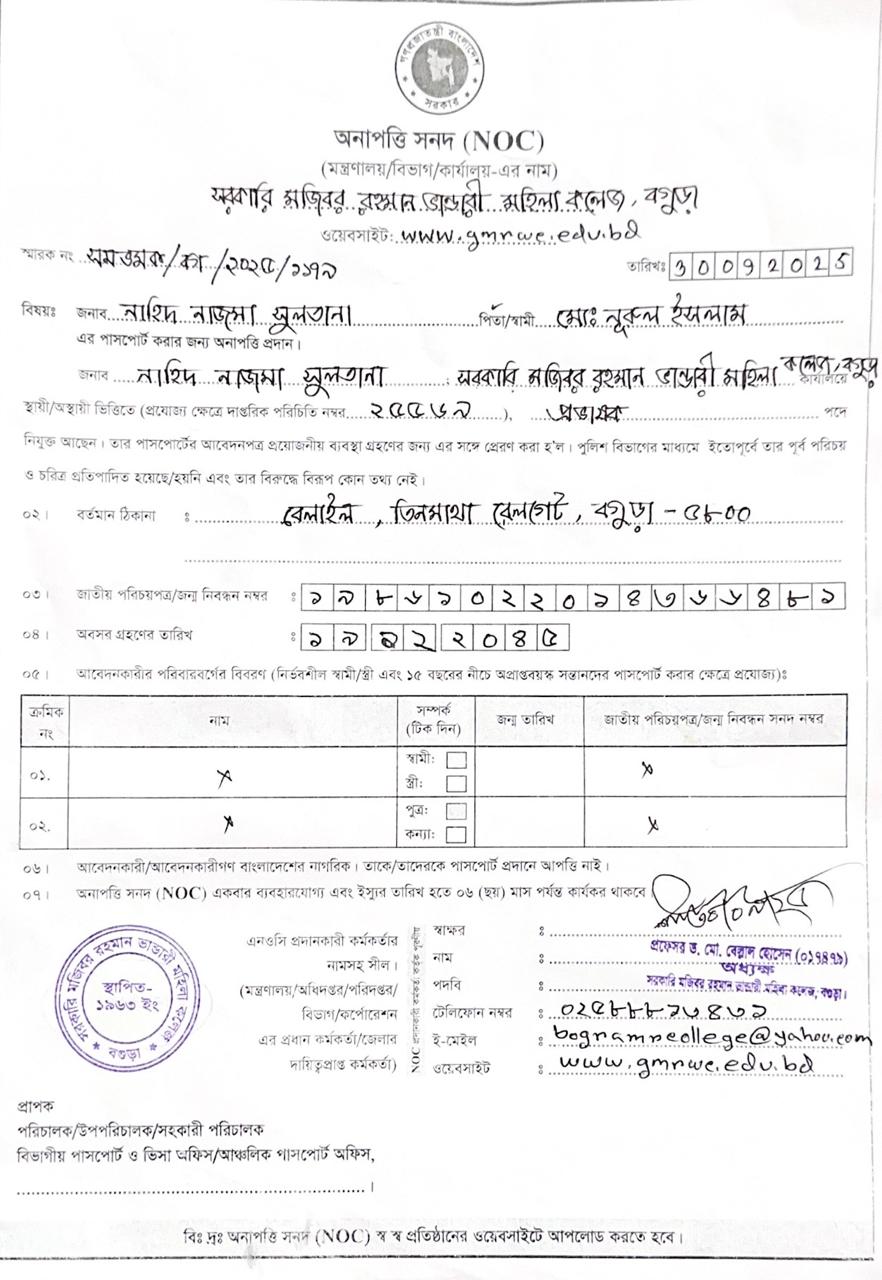 গণপ্রজাতন্ত্রী বাংলাদেশ
সরকার
অনাপত্তি সনদ (NOC)
(মন্ত্রণালয়/বিভাগ/কার্যালয়-এর নাম)
সরকারি মজিবর রহমান ভান্ডারী মহিলা কলেজ, বগুড়া
ওয়েবসাইট: www.gmrwc.edu.bd
স্মারক নং সমভমক/বগ/২০২৫/১১৭৯
তারিখঃ 30092025
বিষয়ঃ জনাব নাহিদ নাজমা সুলতানা পিতা/স্বামী মোঃ নূরুল ইসলাম
এর পাসপোর্ট করার জন্য অনাপত্তি প্রদান।
জনাব নাহিদ নাজমা সুলতানা : সরকারি মজিবর রহমান ভান্ডারী মহিলা কলেজ, বগুড়া কার্যালয়ে
স্থায়ী/অস্থায়ী ভিত্তিতে (প্রযোজ্য ক্ষেত্রে দাপ্তরিক পরিচিতি নম্বর ২৫৫৬৯), প্রভাষক পদে
নিযুক্ত আছেন। তার পাসপোর্টের আবেদনপত্র প্রয়োজনীয় ব্যবস্থা গ্রহণের জন্য এর সঙ্গে প্রেরণ করা হ'ল। পুলিশ বিভাগের মাধ্যমে ইতোপূর্বে তার পূর্ব পরিচয়
ও চরিত্র প্রতিপাদিত হয়েছে/হয়নি এবং তার বিরুদ্ধে বিরূপ কোন তথ্য নেই।
০২। বর্তমান ঠিকানা : বেলাইল, তিনমাথা রেলগেট, বগুড়া - ৫৮০০
০৩। জাতীয় পরিচয়পত্র/জন্ম নিবন্ধন নম্বর : ১৯৮৬১০২২০১৪৭৬৬৪৮১
০৪। অবসর গ্রহণের তারিখ : ১৯১২২০৪৫
০৫। আবেদনকারীর পরিবারবর্গের বিবরণ (নির্ভরশীল স্বামী/স্ত্রী এবং ১৫ বছরের নীচে অপ্রাপ্তবয়স্ক সন্তানদের পাসপোর্ট করার ক্ষেত্রে প্রযোজ্য)ঃ
ক্রমিক নং নাম সম্পর্ক (টিক দিন) জন্ম তারিখ জাতীয় পরিচয়পত্র/জন্ম নিবন্ধন সনদ নম্বর
০১. × স্বামী: ×
স্ত্রী:
০২. × পুত্র: ×
কন্যা:
০৬। আবেদনকারী/আবেদনকারীগণ বাংলাদেশের নাগরিক। তাকে/তাদেরকে পাসপোর্ট প্রদানে আপত্তি নাই।
০৭। অনাপত্তি সনদ (NOC) একবার ব্যবহারযোগ্য এবং ইস্যুর তারিখ হতে ০৬ (ছয়) মাস পর্যন্ত কার্যকর থাকবে
সরকারি মজিবর রহমান ভান্ডারী মহিলা কলেজ
স্থাপিত-
১৯৬৩ ইং
বগুড়া
এনওসি প্রদানকারী কর্মকর্তার
নামসহ সীল।
(মন্ত্রণালয়/অধিদপ্তর/পরিদপ্তর/
বিভাগ/কর্পোরেশন
এর প্রধান কর্মকর্তা/জেলার
দায়িত্বপ্রাপ্ত কর্মকর্তা)
NOC প্রদানকারী কর্মকর্তা কর্তৃক পূরণীয়
স্বাক্ষর :
নাম : প্রফেসর ড. মো. বেল্লাল হোসেন (০১৭৪৭৯)
অধ্যক্ষ
পদবি : সরকারি মজিবর রহমান ভান্ডারী মহিলা কলেজ, বগুড়া।
টেলিফোন নম্বর :
ই-মেইল : bogramrcollege@yahoo.com
ওয়েবসাইট : www.gmrwc.edu.bd
প্রাপক
পরিচালক/উপপরিচালক/সহকারী পরিচালক
বিভাগীয় পাসপোর্ট ও ভিসা অফিস/আঞ্চলিক পাসপোর্ট অফিস,
।
বিঃ দ্রঃ অনাপত্তি সনদ (NOC) স্ব স্ব প্রতিষ্ঠানের ওয়েবসাইটে আপলোড করতে হবে।